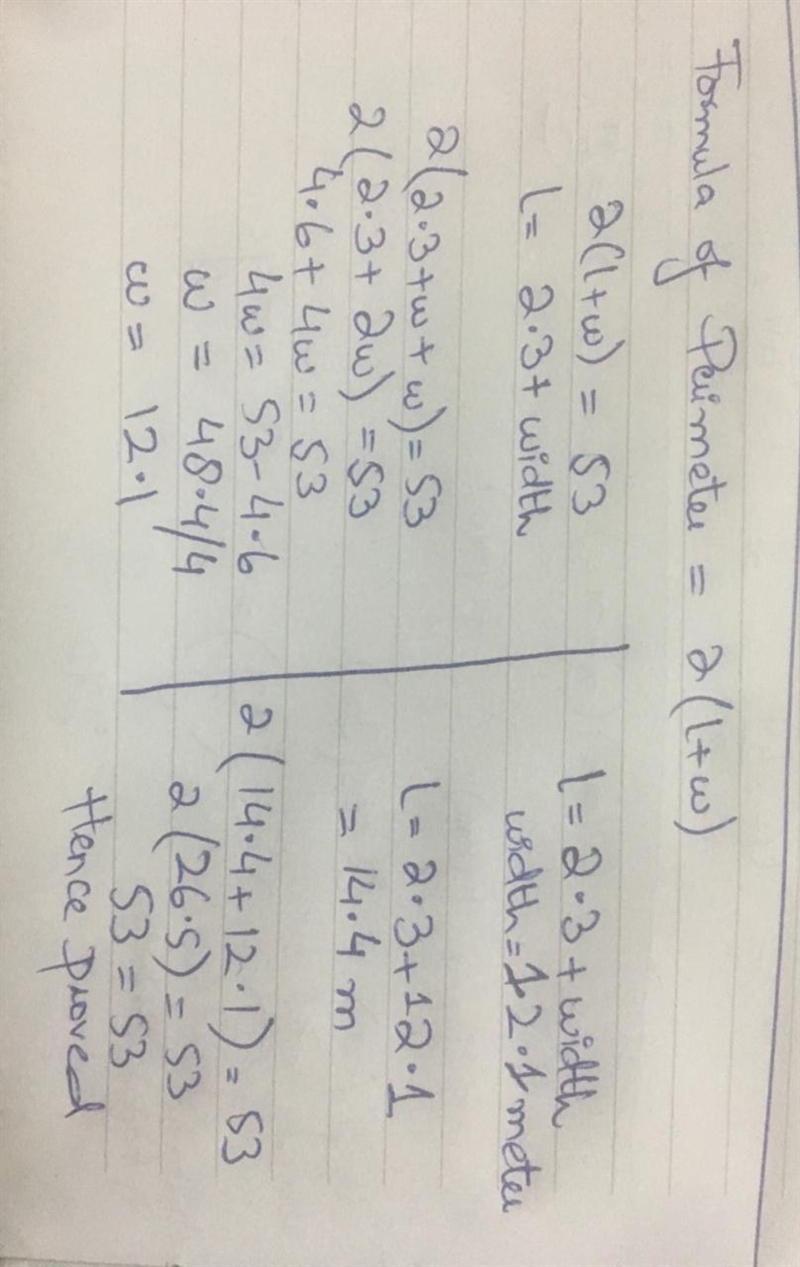 Formula of Perimeter = 2(l+w)
2(l+w) = 53
l = 2.3 + width
2(2.3+w+w) = 53
2(2.3+2w) = 53
4.6 + 4w = 53
4w = 53-4.6
w = 48.4/4
w = 12.1
l = 2.3 + width
width = 12.1 meter
l = 2.3+12.1
= 14.4 m
2(14.4+12.1) = 53
2(26.5) = 53
53 = 53
Hence proved